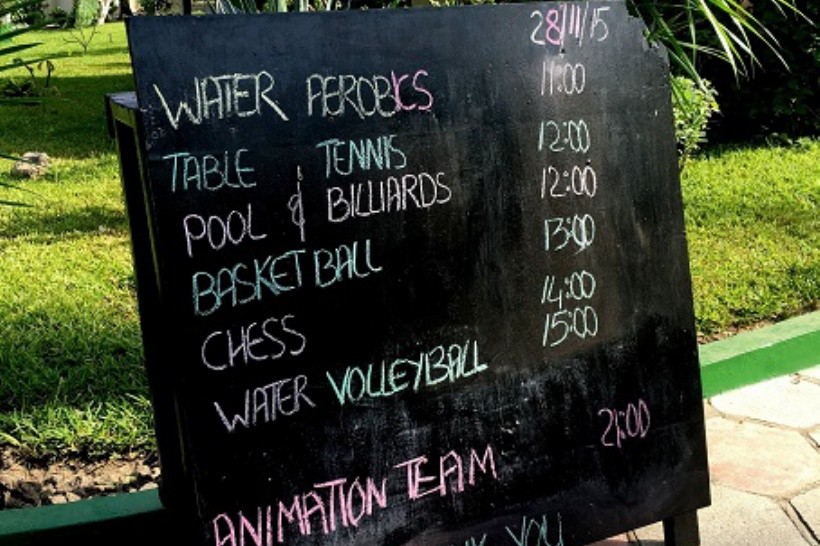 28/11/15
WATER AEROBICS 11:00
TABLE TENNIS 12:00
POOL & BILLIARDS 12:00
BASKETBALL 13:00
CHESS 14:00
WATER VOLLEYBALL 15:00
ANIMATION TEAM 21:00
YOU